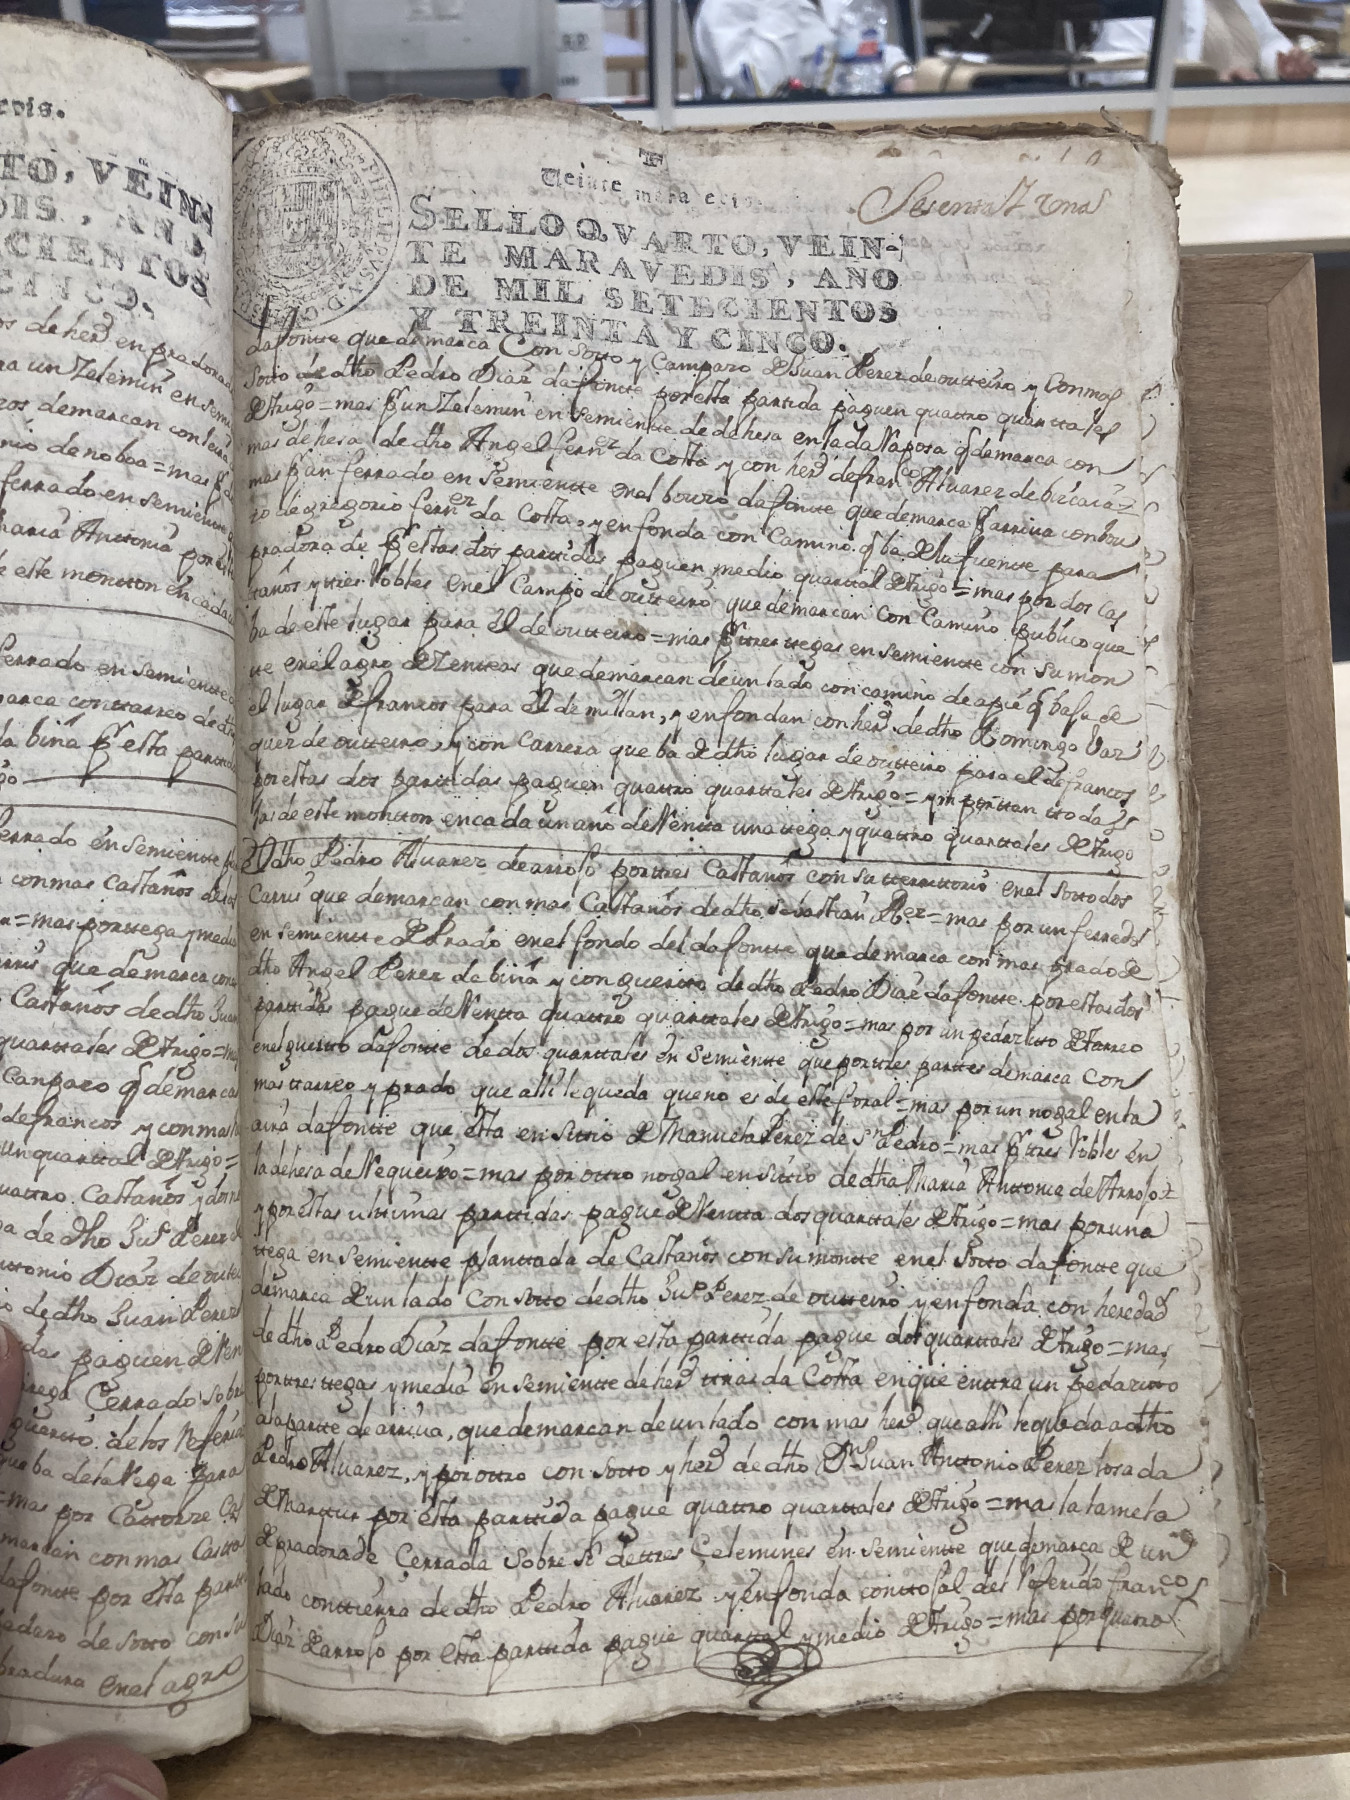 rvis.
TO, VEIN-
DIS, AÑO
CIENTOS
CINCO.
os de herd en pradora
ra un Zelemin en semi
ros demarcan con
nio de noboa = mas
ferrado en semiente
Maria Anttonia por
de este montton en cada
ferrado en semiente
marca con tarreo de
la biña pr esta partida
ferrado en semiente
con mas Castaños de
= mas por tega y media
que demarca con
Castaños de dho Juan
quarttales de trigo = mas
Campazo q demarca
de francos y con mas
un quarttal de trigo =
quattro Castaños y
de dho Jun Perez
Anttonio Diaz de
de dho Juan Perez
paguen de Ren
Cerrado sobre
de los Referid
que ba de la Vega para
= mas por Cattorze Cas
marcan con mas Castta
dafontte por esta partti
pedazo de sotto con su
pradura en el agro
Veinte maravedis.
Sesenta Y una
SELLO QVARTO, VEIN-
TE MARAVEDIS, AÑO
DE MIL SETECIENTOS
Y TREINTA Y CINCO.
dafontte que demarca Con Sotto y Campazo de Juan Perez de outteiro y Con mas
Sotto de dho Pedro Diaz dafontte por esta parttida paguen quattro quarttales
de trigo = mas pr un Zelemin en semientte de dehesa en la da Raposa q demarca con
mas dehesa de dho Angel fernez da Costa y con herd de franco Alvarez de
mas pr un ferrado en semientte en el bouzo dafontte que demarca pr arriva con bou
zo de gregorio fernez da Costa, y en fonda con Camino q ba de la fuentte para
pradora de pr estas dos parttidas paguen medio quarttal de trigo = mas por dos Cas
taños y tres Robles en el Campo de outteiro que demarcan con Camino publico que
ba de este lugar para el de outteiro = mas pr tres tegas en semientte con su mon
te en el agro de Zenteas que demarcan de un lado con camino de a pie q baja de
el lugar de francos para el de millan, y en fondan con herd de dho Domingo Vaz
quez de outteiro, y con Carrera que ba de dho lugar de outteiro para el de francos
por estas dos parttidas paguen quattro quarttales de trigo = y ymporttan ttodas
las de este montton en cada un año de Rentta una ttega y quattro quarttales de trigo
Dho Pedro Alvarez de arrojo por tres Castaños con su territtorio en el sotto dos
Carris que demarcan con mas Castaños de dho Sebastian = mas por un ferrado
en semientte de Prado en el fondo del dafontte que demarca con mas prado de
dho Angel Perez da biña y con gueitto de dho Pedro Diaz dafontte por estas dos
parttidas pague de Rentta quattro quarttales de trigo = mas por un pedazitto de tarreo
en el gueitto dafontte de dos quarttales en semientte que por tres parttes demarca con
mas tarreo y prado que alli le queda que no es de este foral = mas por un nogal en la
aira dafontte que esta en sitio de Manuela Perez de Sn Pedro = mas pr tres Robles en
la dehesa de Regueiro = mas por ottro nogal en sitio de dha Maria Anttonia de Arrojo =
y por estas ultimas parttidas pague de Rentta dos quarttales de trigo = mas por una
ttega en semientte planttada de Castaños con su montte en el Sotto dafontte que
demarca de un lado Con Sotto de dho Jun Perez de outteiro y en fonda con heredad
de dho Pedro Diaz dafontte por esta parttida pague dos quarttales de trigo = mas
por tres ttegas y media en semientte de herd ttras da Costa en que enttra un pedazitto
a la partte de arriva, que demarcan de un lado con mas herd que alli le queda a dho
Pedro Alvarez, y por ottro con Sotto y herd de dho Dn Juan Anttonio Perez losada
de por esta parttida pague quattro quarttales de trigo = mas la lamela
de pradora de Cerrada Sobre si de ttres Celemines en semientte que demarca de un
lado con ttierra de dho Pedro Alvarez y en fonda con ttojal del Referido franco
Diaz de arrojo por esta parttida pague quarttal y medio de trigo = mas por quatro